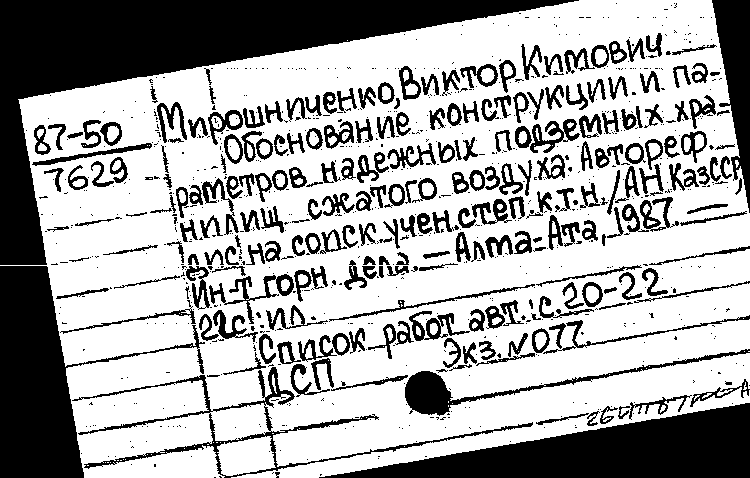 87-50
7629
Мирошниченко, Виктор Кимович.
Обоснование конструкции и па-
раметров надежных подземных хра-
нилищ сжатого воздуха: Автореф.
дис. на соиск учен. степ. к.т.н. / АН КазССР,
Ин-т горн. дела. — Алма-Ата, 1987. —
22с.: ил.
Список работ авт.: с. 20-22.
Экз. №077.
ДСП.